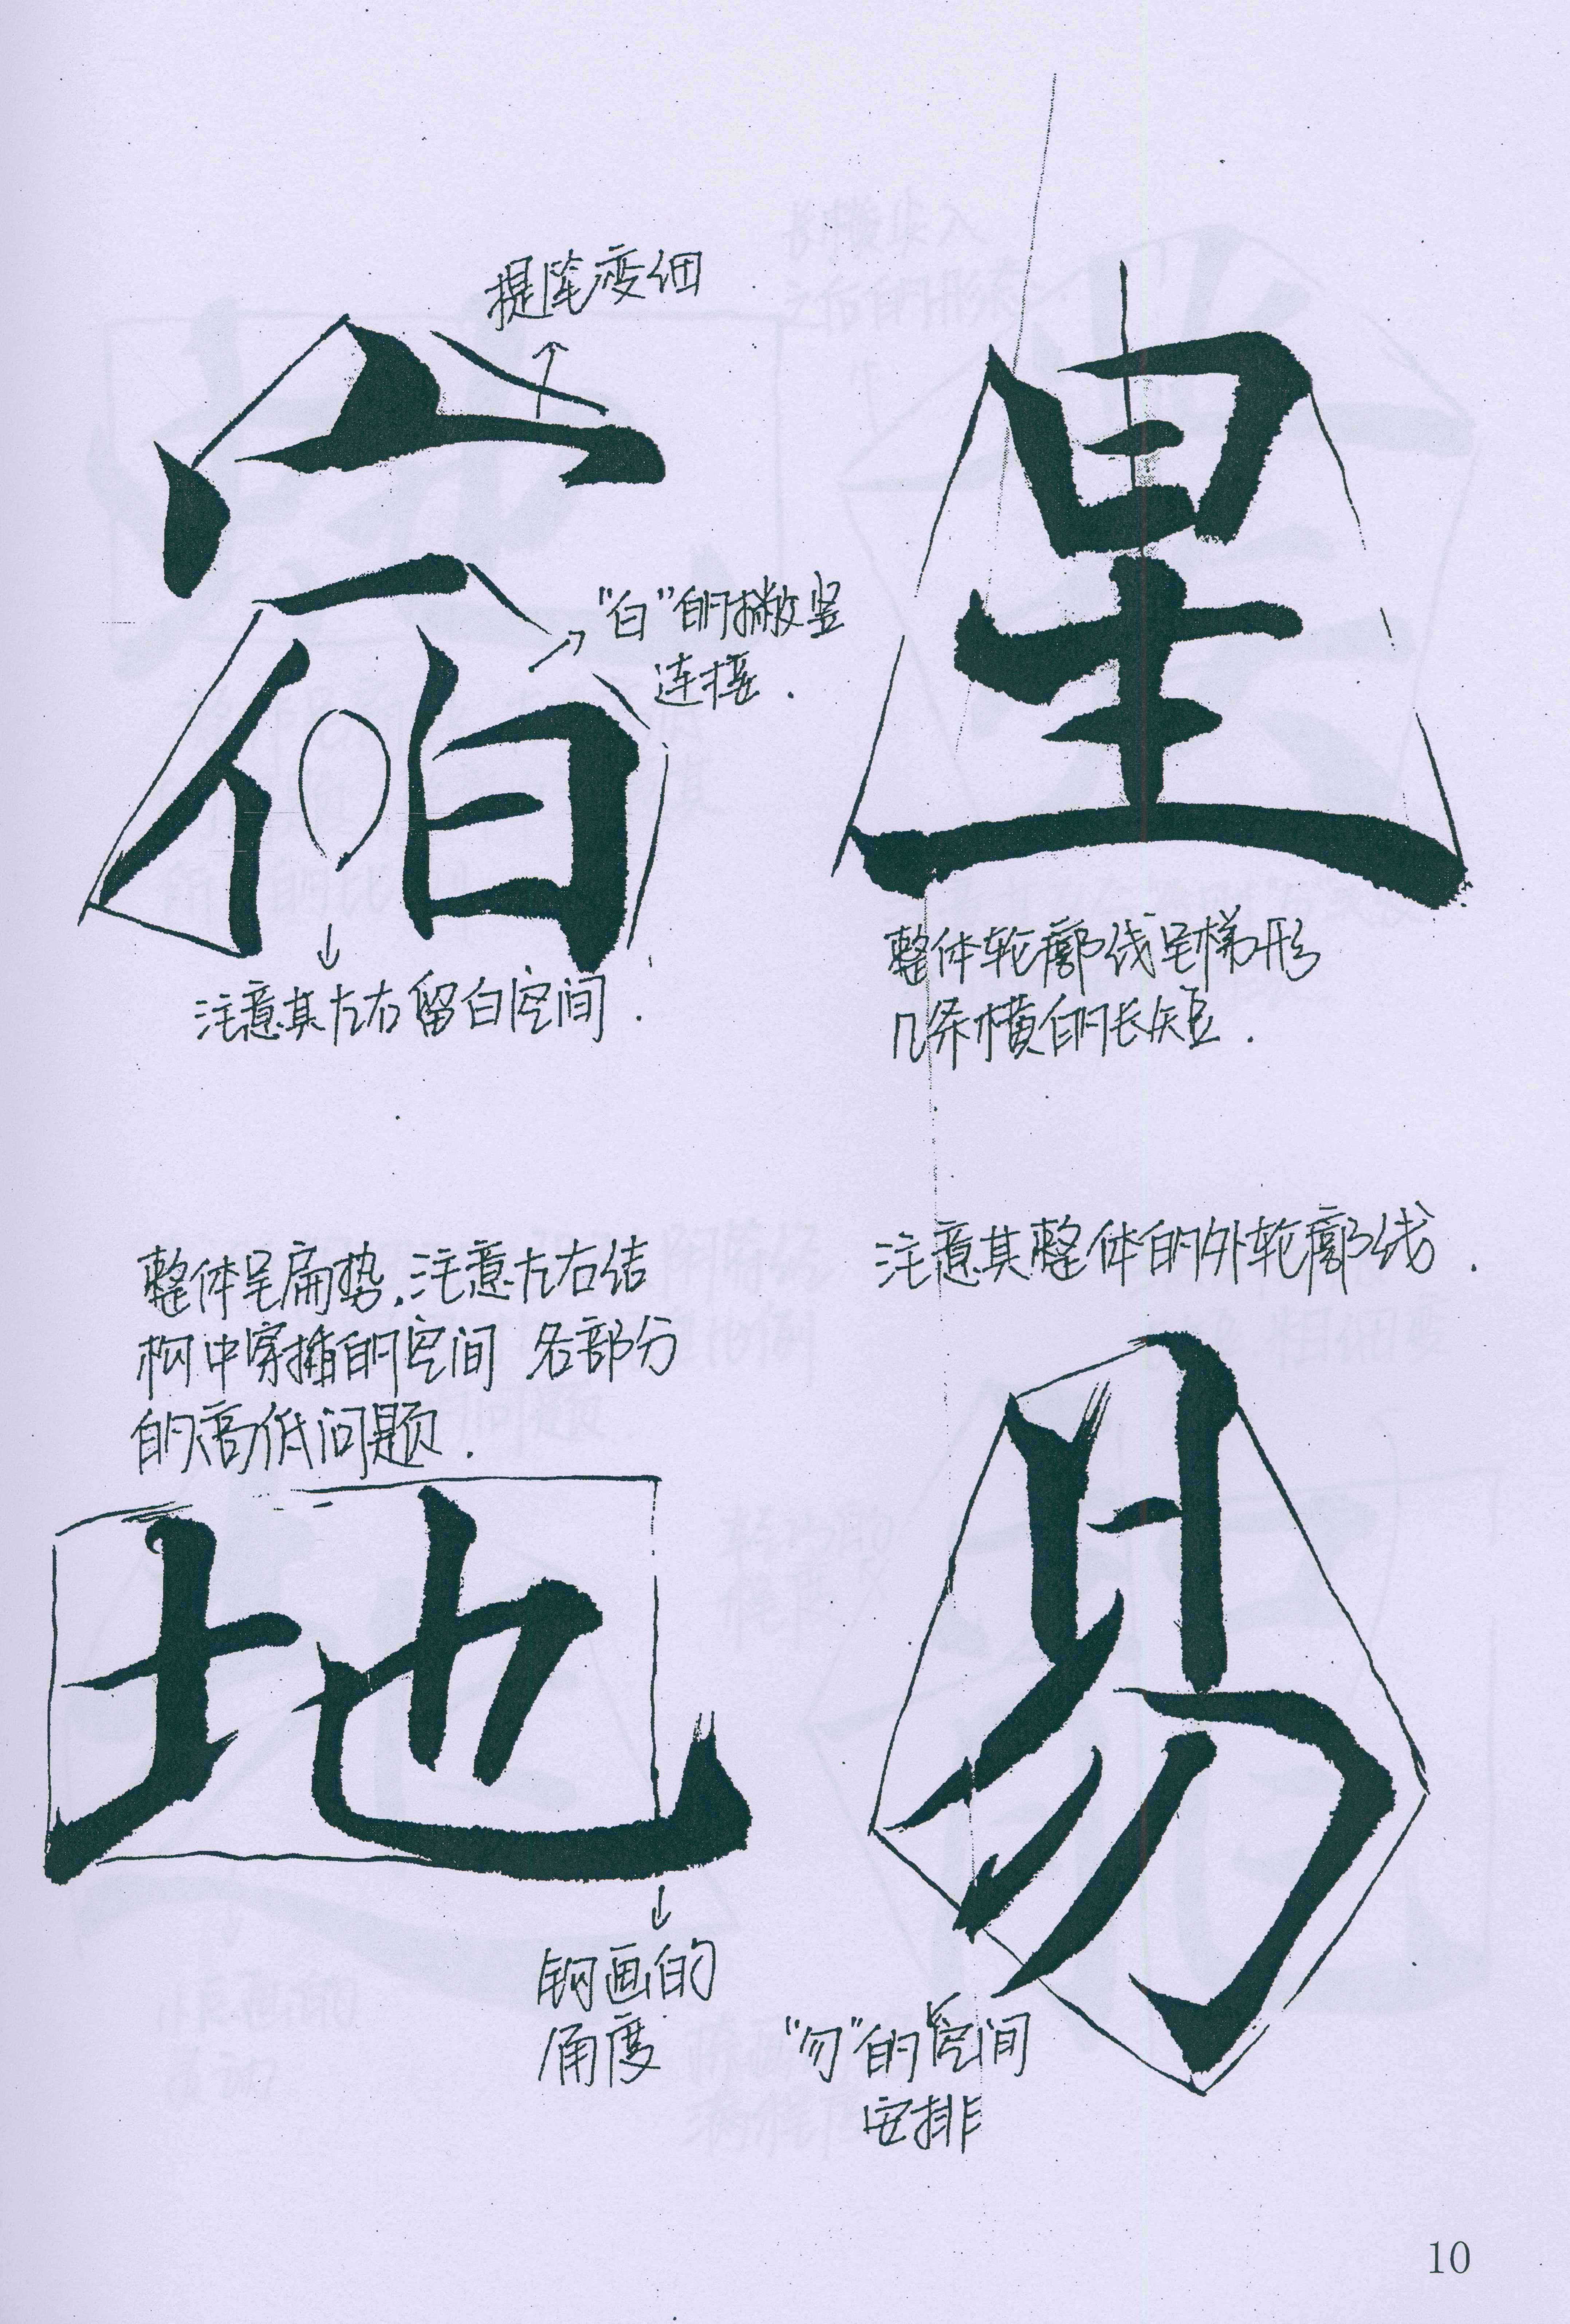 提笔变细
宿
"白"的撇竖
连接.
注意其左右留白空间.
星
整体轮廓线呈梯形
几条横的长短.
整体呈扁势.注意左右结
构中穿插的空间 各部分
的高低问题.
地
钩画的
角度
注意其整体的外轮廓线.
易
"勿"的空间
安排
10